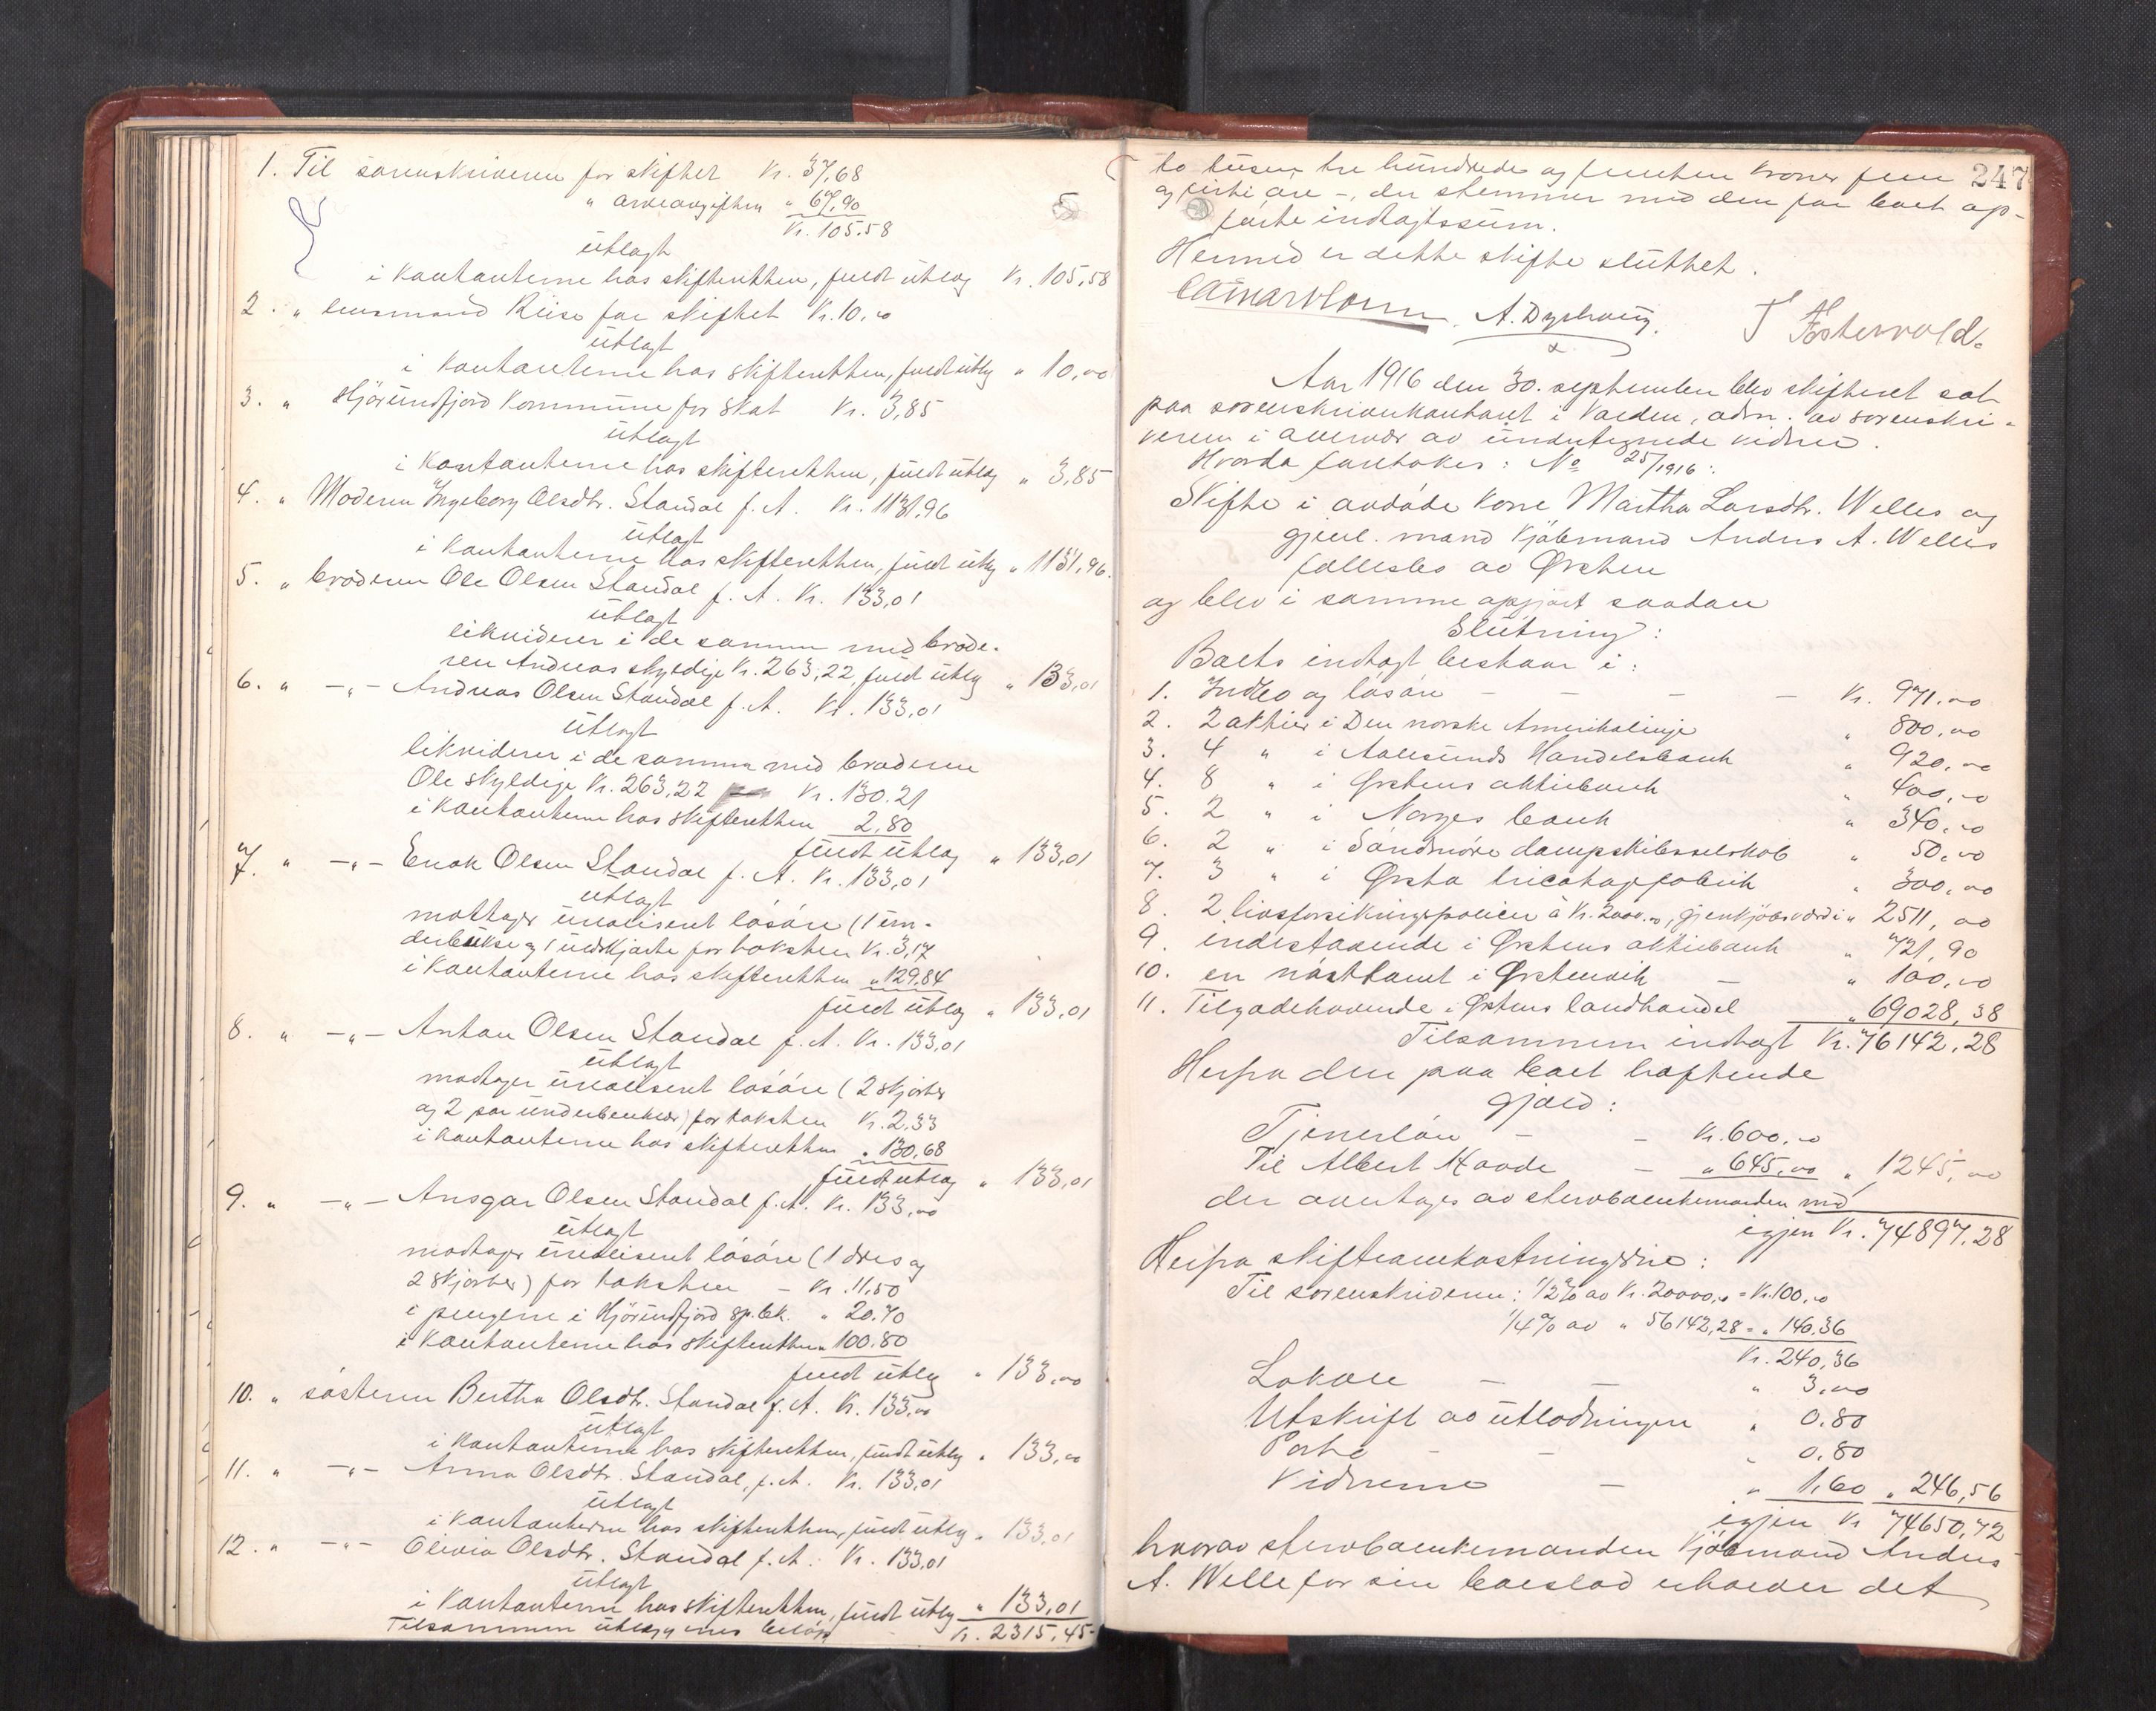 1. Til sorenskriveren for skiftet Kr. 37,68
" arveavgiften " 67,90
Kr. 105.58
utlagt
i kontanterne hos skifteretten, fuldt utlag Kr. 105,58
2. " lensmand Riise for skiftet Kr. 10,00
utlagt
i kontanterne hos skifteretten, fuldt utlag " 10,00
3. " Hjörundfjord kommune for skat Kr. 3,85
utlagt
i kontanterne hos skifteretten, fuldt utlag " 3,85
4. " Moderen Ingeborg Olsdtr. Standal f. A. Kr. 1131,96
utlagt
i kontanterne hos skifteretten, fuldt utlag " 1131,96.
5. " broderen Ole Olsen Standal f. A. Kr. 133,01
utlagt
likviderer i de sammen med brode-
ren Andreas skyldige Kr. 263,22, fuldt utlag " 133,01
6. " -"- Andreas Olsen Standal f. A. Kr. 133,01
utlagt
likviderer i de sammen med broderen
Ole skyldige Kr. 263,22 Kr. 130.21
i kontanterne hos skifteretten 2,80
fuldt utlag " 133,01
7. " -"- Enok Olsen Standal f. A. Kr. 133,01
utlagt
mottager urealisert lösöre (1 un-
derbukse og 1 uldskjorte for taksten Kr. 3,17
i kontanterne hos skifteretten " 129,84
fuldt utlag " 133,01
8. " -"- Anton Olsen Standal f. A. Kr. 133,01
utlagt
modtager urealisert lösöre (2 skjorter
og 2 par underbenklær) for taksten Kr. 2,33
i kontanterne hos skifteretten " 130,68
fuldt utlag " 133,01
9. " -"- Ansgar Olsen Standal f. A. Kr. 133,00
utlagt
modtager urealisert lösöre (1 dres og
2 skjorter) for taksten - Kr. 11,50
i pengene i Hjörundfjord sp.bk. " 20.70
i kontanterne hos skifteretten " 100.80
fuldt utlag " 133,00
10. " søsteren Bertha Olsdtr. Standal f. A. Kr. 133,00
utlagt
i kontanterne hos skifteretten, fuldt utlag " 133,00
11. " -"- Anna Olsdtr. Standal, f. A. Kr. 133,01
utlagt
i kontanterne hos skifteretten, fuldt utlag " 133,01
12. " -"- Olivia Olsdtr. Standal f. A. Kr. 133,01
utlagt
i kontanterne hos skifteretten, fuldt utlag " 133,01
Tilsammen utlægnes beløp Kr. 2315,45-
247
to tusen tre hundrede og femten kroner fem
og firti øre -, der stemmer med den for boet op-
førte indtægtssum.
Hermed er dette skifte sluttet.
A. Dyshoug.
T Æstervold.
Aar 1916 den 30. september blev skifteret sat
paa sorenskriverkontoret i Volden, adm. av sorenskri-
veren i overvær av undertegnede vidner.
Hvorda foretokes: No 25/1916:
Skifte i avdøde kone Martha Larsdtr. Welles og
gjenl. mand kjøbmand Andres A. Welles
fællesbo av Ørsten
og blev i samme opgjort saadan
Slutning:
Boets indtægt bestaar i:
1. Indbo og løsøre - - - - Kr. 971,00
2. 2 aktier i Den norske Amerikalinje " 800,00
3. 4 " i Aalesunds Handelsbank " 920,00
4. 8 " i Ørstens aktiebank " 400,00
5. 2 " i Norges bank " 340,00
6. 2 " i Söndmöre dampskibsselskab " 50,00
7. 3 " i Ørsta tricotagefabrik " 300,00
8. 2 livsforsikringspolicer à Kr. 2000.00, gjenkjøbsværdi " 2511,00
9. indestaaende i Ørstens aktiebank " 721,90
10. en nøsttomt i Ørstenvik - " 100,00
11. Tilgodehavende i Ørstens landhandel " 69028,38
Tilsammen indtægt Kr. 76142,28
Herfra den paa boet heftende
gjæld:
Tjenerløn - - Kr. 600,00
Til Albert Maade - " 645,00 " 1245,00
der overtages av stervboenkemanden med
igjen Kr. 74897.28
Herfra skifteomkostningerne:
Til sorenskriveren: 1/2% av Kr. 20000,00 = Kr. 100,00
1/4% av " 56142,28 = " 140,36
Kr. 240,36
Lokale - - " 3,00
Utskrift av utlodningen " 0.80
Porto - - " 0,80
Vidnerne - " 1,60 " 246,56
igjen Kr 74650,72
hvorav stervboenkemanden kjøbmand Andres
A. Welle for sin boeslod erholder det